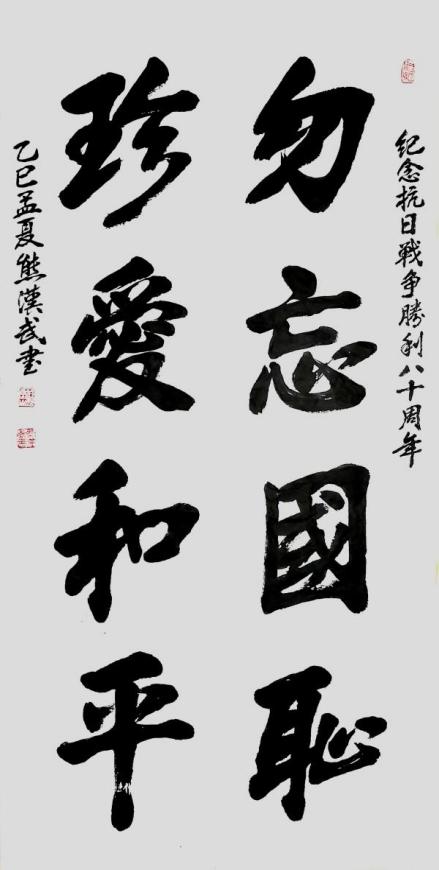 纪念抗日戰争勝利八十周年
勿忘國恥
珍愛和平
乙巳孟夏熊漢武书